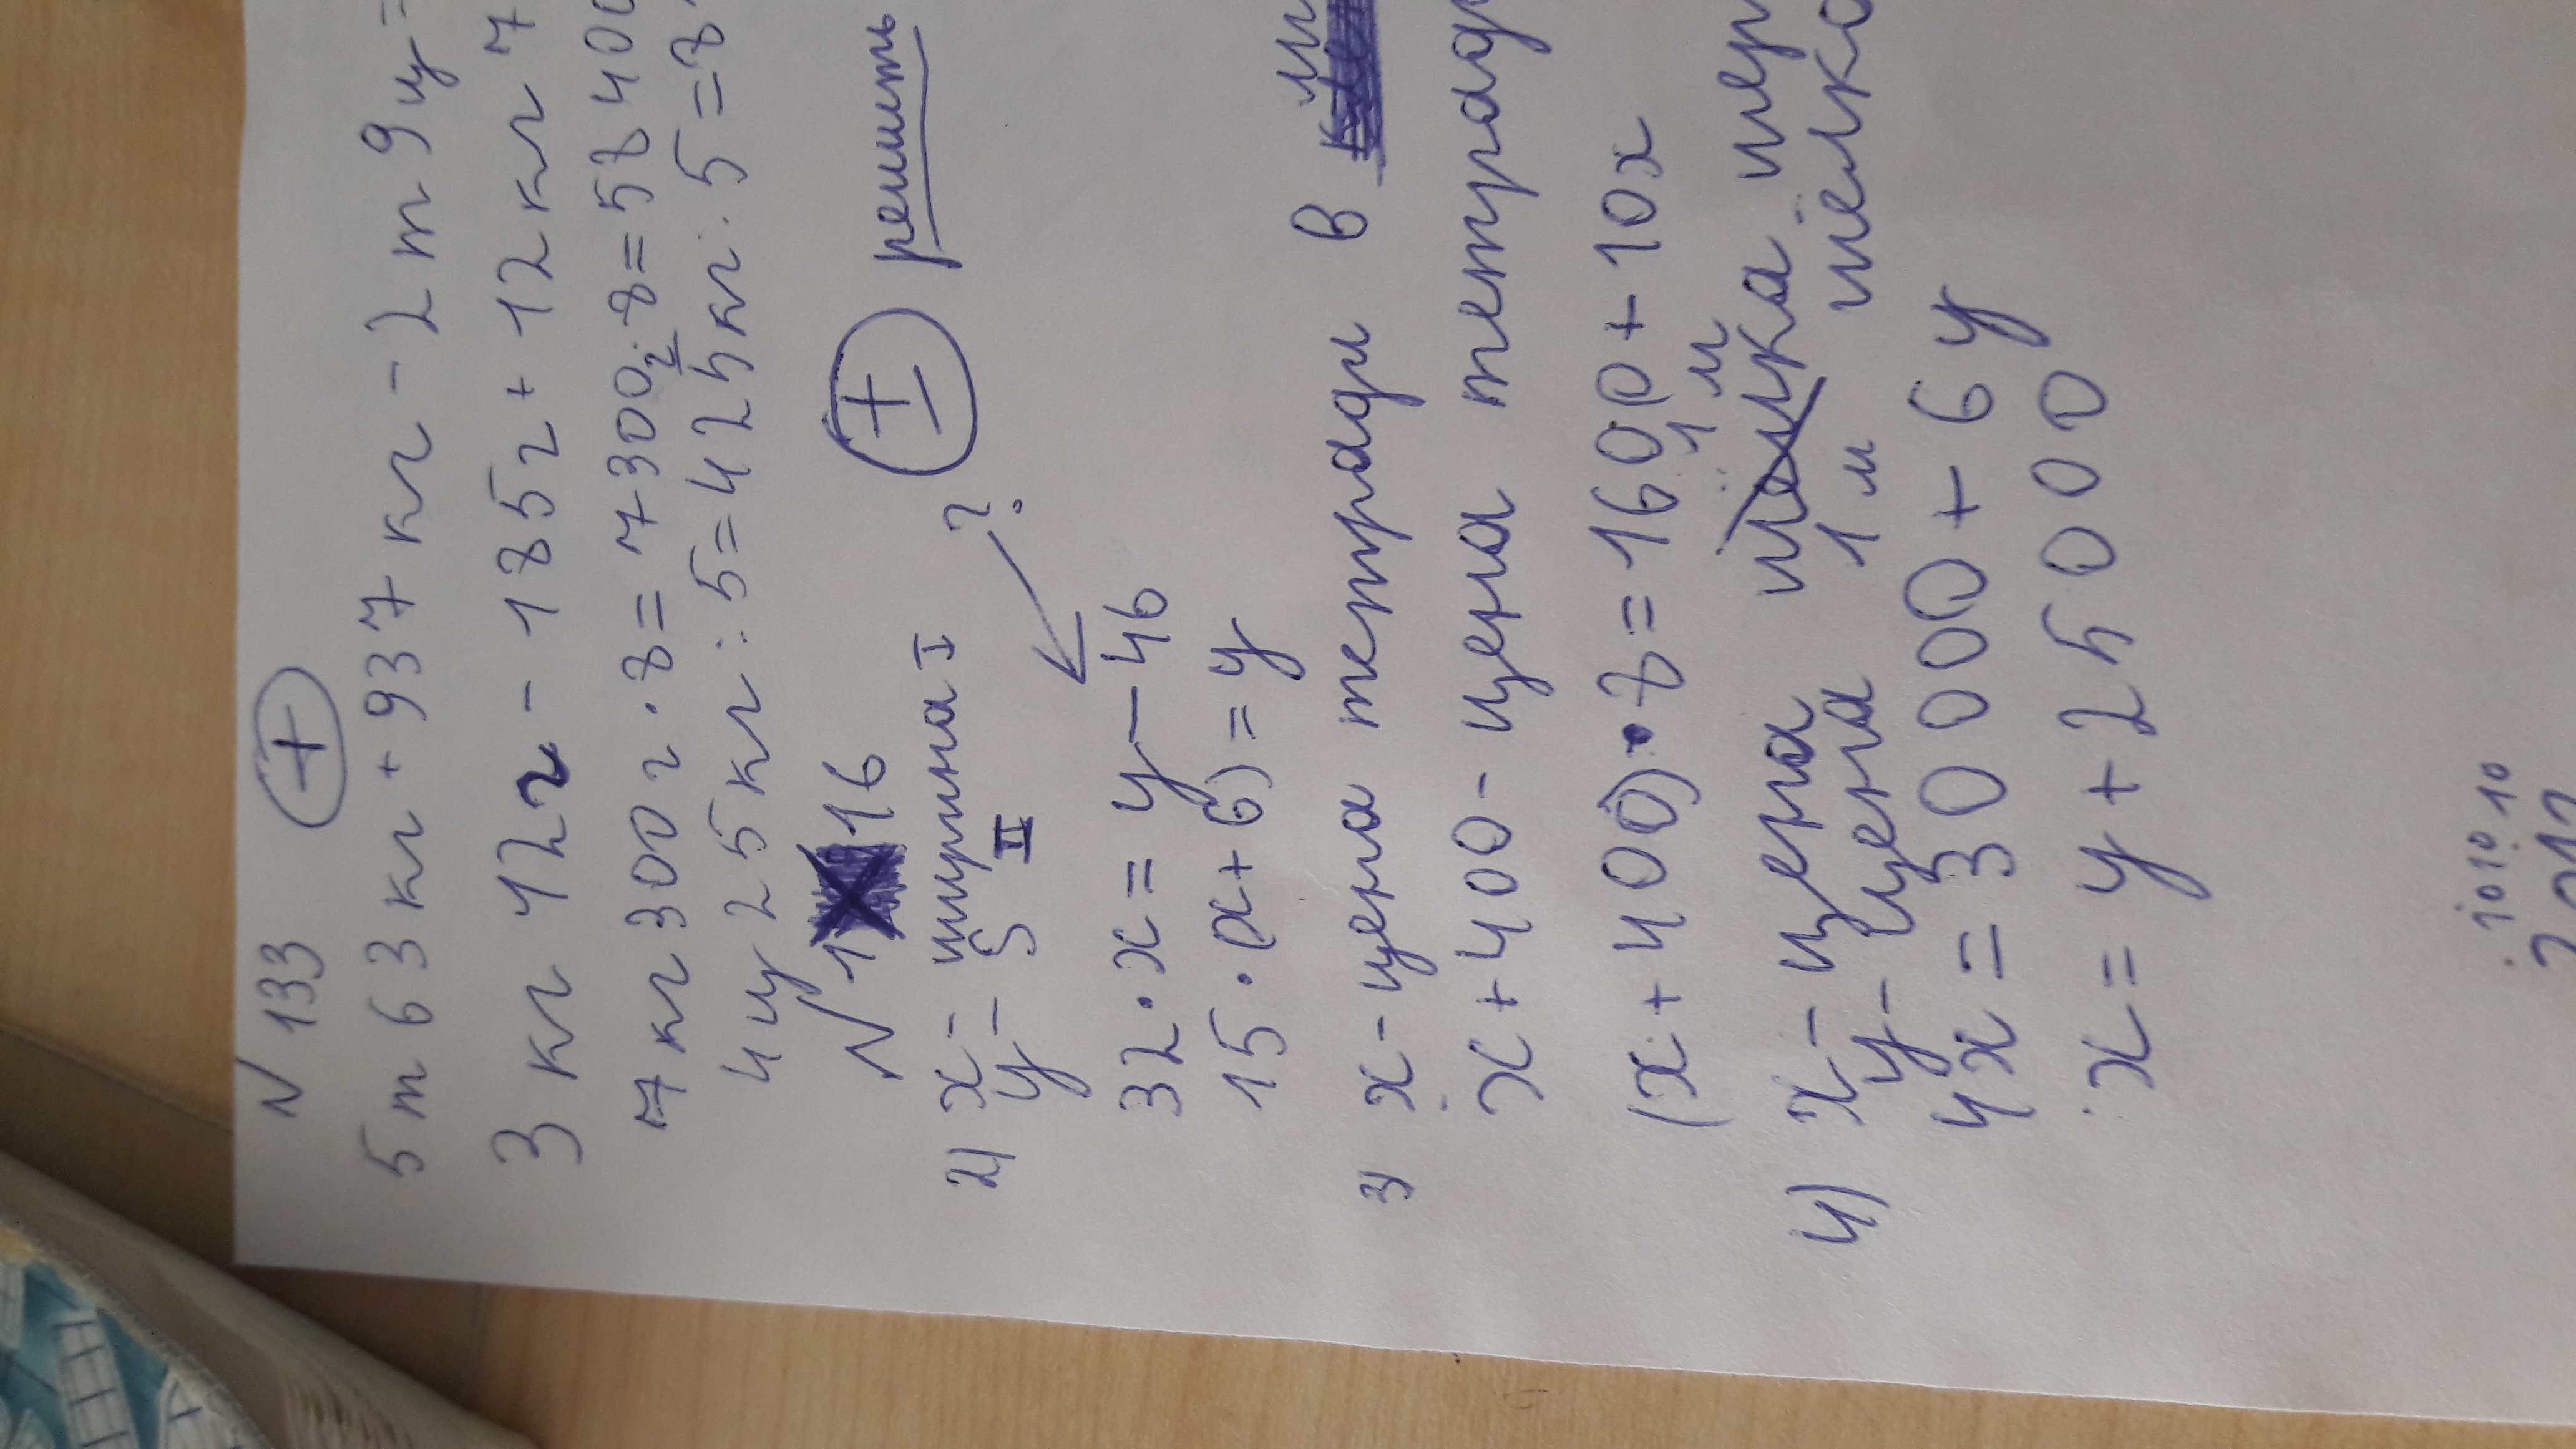 N 133 +
5 т 63 кг + 937 кг - 2 т 9 ц =
3 кг 42 г - 185 г + 12 кг 7
7 кг 300 г · 8 = 7300 г · 8 = 58400
4 ц 25 кг : 5 = 425 кг : 5 = 8
N 116 + - решить
2) x - ширина I
y - S II ?
32 · x = y - 46
15 · (x + 6) = y
3) x - цена тетради в
x + 400 - цена тетрад
(x + 400) · 8 = 1600 + 10x
4) x - цена 1 м шер
y - цена 1 м шелка
4x = 30 000 + 6y
x = y + 25000
10 10 10